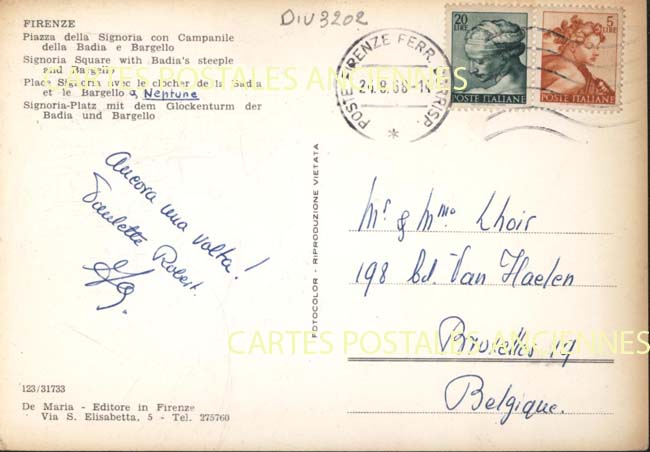 DIV 3202
FIRENZE
Piazza della Signoria con Campanile
della Badia e Bargello
Signoria Square with Badia's steeple
and Bargello
Place Signoria avec le clocher de la Badia
et le Bargello & Neptune
Signoria-Platz mit dem Glockenturm der
Badia und Bargello
20
LIRE
POSTE ITALIANE
5
LIRE
POSTE ITALIANE
POSTE FIRENZE FERR. CORRISP.
24.9.66-1
*
CARTES POSTALES ANCIENNES
Ancora una volta!
Paulette Robert.
FOTOCOLOR - RIPRODUZIONE VIETATA
Mr & Mme Lhoir
198 bd. Van Haelen
Bruxelles 19
Belgique.
CARTES POSTALES ANCIENNES
123/31733
De Maria - Editore in Firenze
Via S. Elisabetta, 5 - Tel. 275760